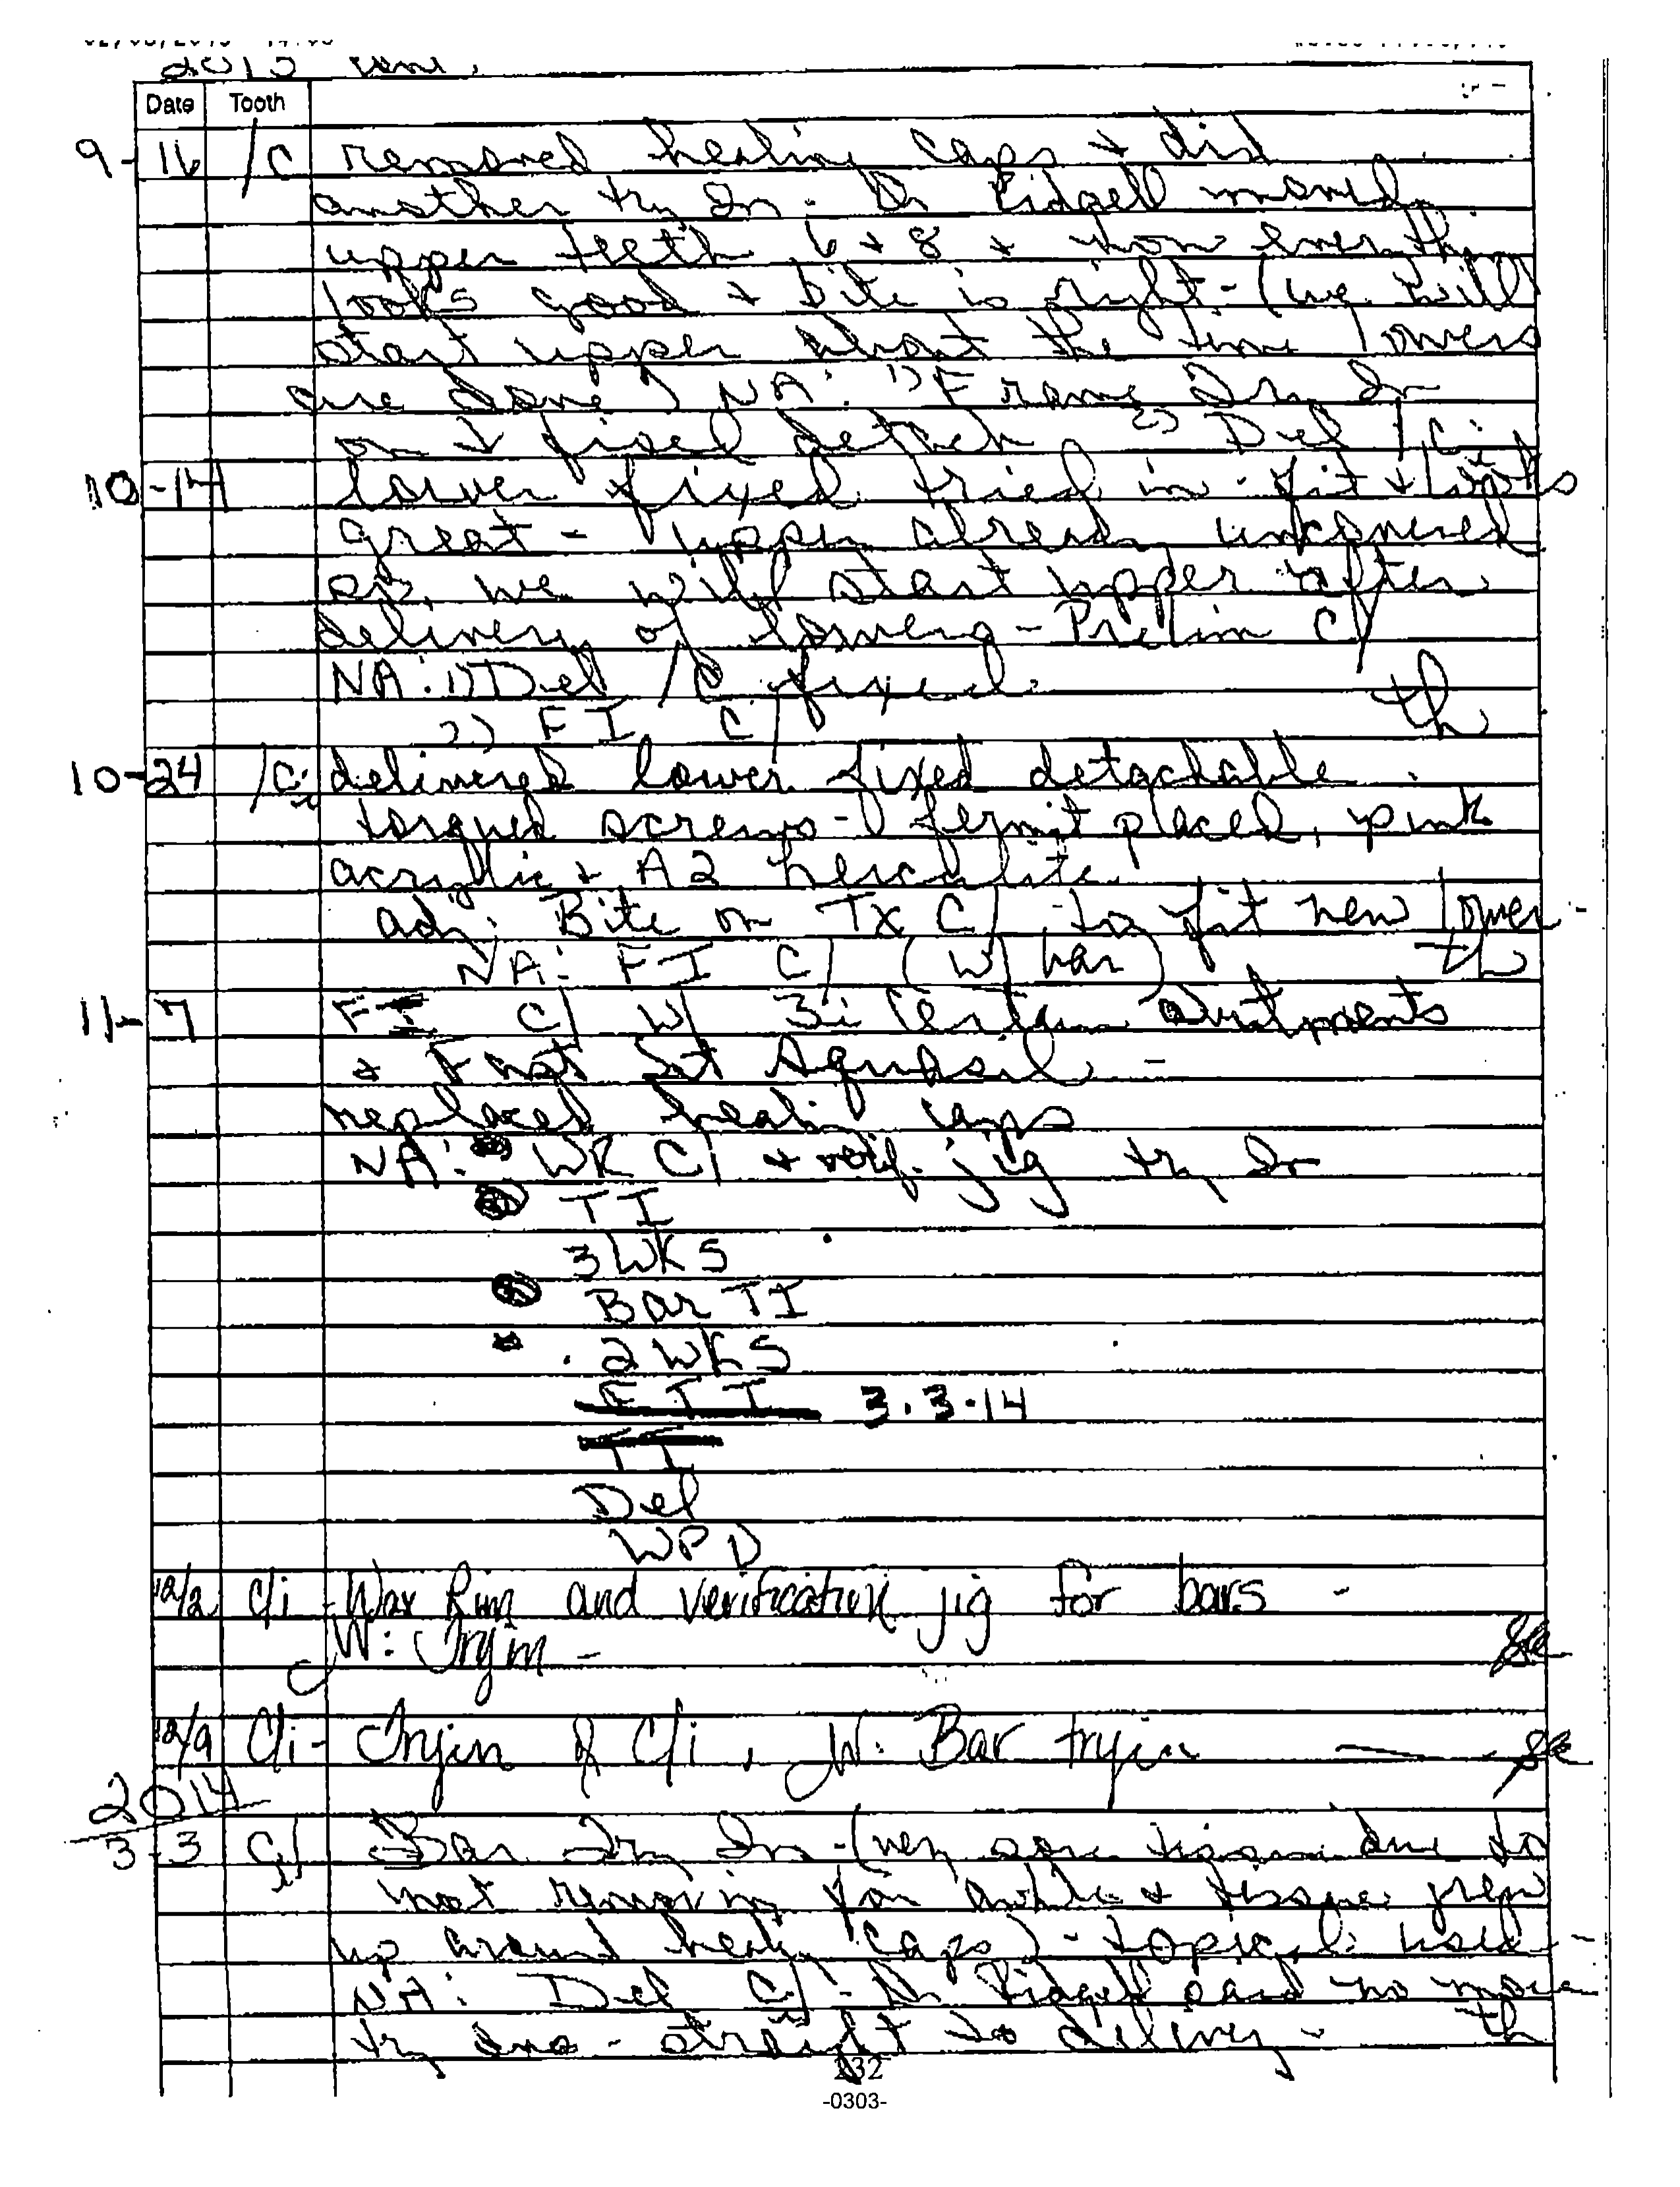 2013 cont.
Date Tooth
9-16 /C removed healing caps + did
another try In. Dr Ridgell moved
upper teeth 6 + 8 + now everythi
looks good + bite is right - (we will
start upper about the time lowers
are done) NA: 1) Frame Try In
on ↓ fixed detach 2) Del /Ci
10-14 lower fixed tried in - fit + looks
great - upper already uncovered
so, we will start upper after
delivery of lowers - Prelim C/
NA: 1) Del /C fixed. th
2) FI C/
10-24 /Ci delivered lower fixed detachable
torqued screws - fermit placed, pink
acrylic + A2 herculite
adj. Bite on Tx C/ to fit new lower -
NA: FI C/ (w/ bar) th
11-7 FI C/ w/ 3i Certain abutments
+ Fast Set Aquasil -
replaced healing caps
NA: WR C/ + verif. jig try In
TI
3 WKS
Bar TI
2 WKS
F TI 3.3.14
TI
Del
WPD
12/2 C/i - Wax Rim and verification jig for bars -
N: Tryin -
12/9 C/i - Tryin of C/i, N: Bar tryin
2014
3-3 C/i Bar Try In - (very sore tissue due to
not removing for awhile + tissue grew
up around healing caps) - topical used -
NA: Del C/i - Dr Ridgell said no more
try ins - straight to delivery - th
232
-0303-